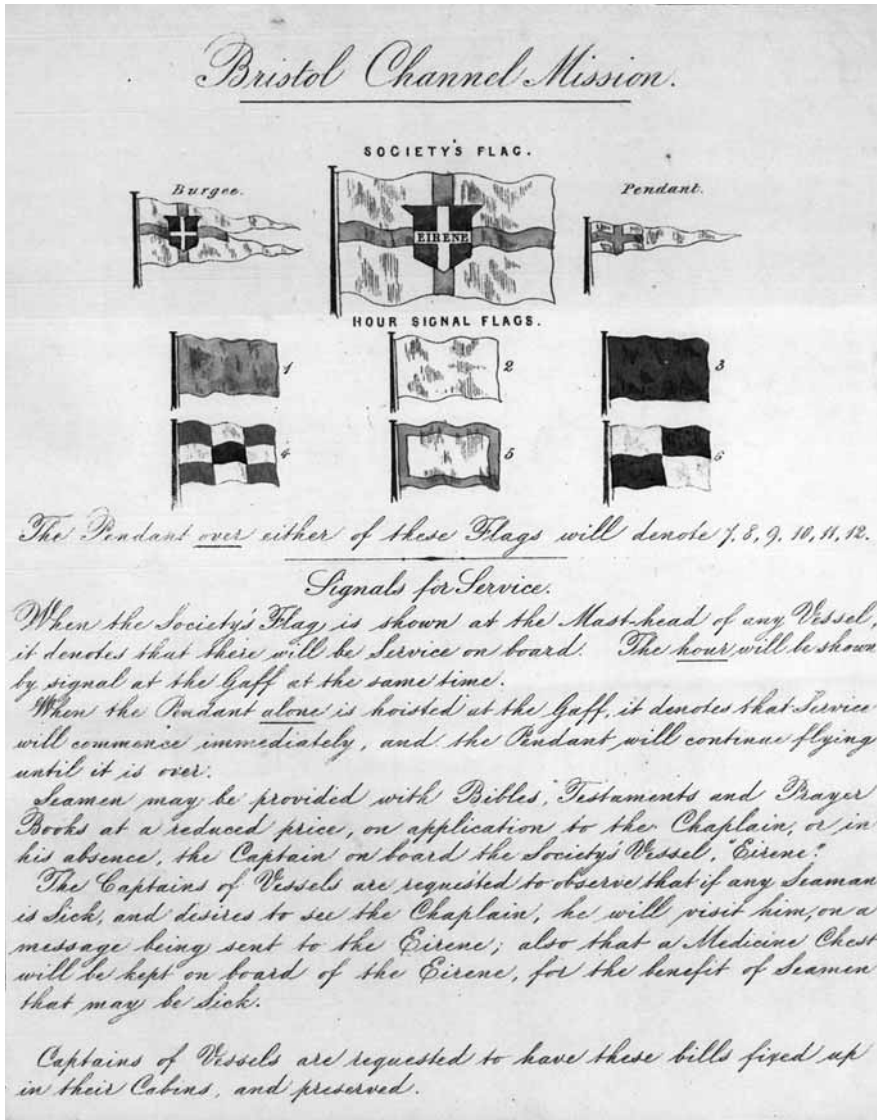 Bristol Channel Mission.
SOCIETY'S FLAG.
Burgee.
Pendant.
EIRENE
HOUR SIGNAL FLAGS.
1
2
3
4
5
6
The Pendant over either of these Flags will denote 7, 8, 9, 10, 11, 12.
Signals for Service.
When the Society's Flag is shown at the Mast-head of any Vessel,
it denotes that there will be Service on board. The hour will be shown
by signal at the Gaff at the same time.
When the Pendant alone is hoisted at the Gaff, it denotes that Service
will commence immediately, and the Pendant will continue flying
until it is over.
Seamen may be provided with Bibles, Testaments and Prayer
Books at a reduced price, on application to the Chaplain, or in
his absence, the Captain on board the Society's Vessel, "Eirene".
The Captains of Vessels are requested to observe that if any Seaman
is Sick, and desires to see the Chaplain, he will visit him, on a
message being sent to the Eirene; also that a Medicine Chest
will be kept on board of the Eirene, for the benefit of Seamen
that may be Sick.
Captains of Vessels are requested to have these bills fixed up
in their Cabins, and preserved.